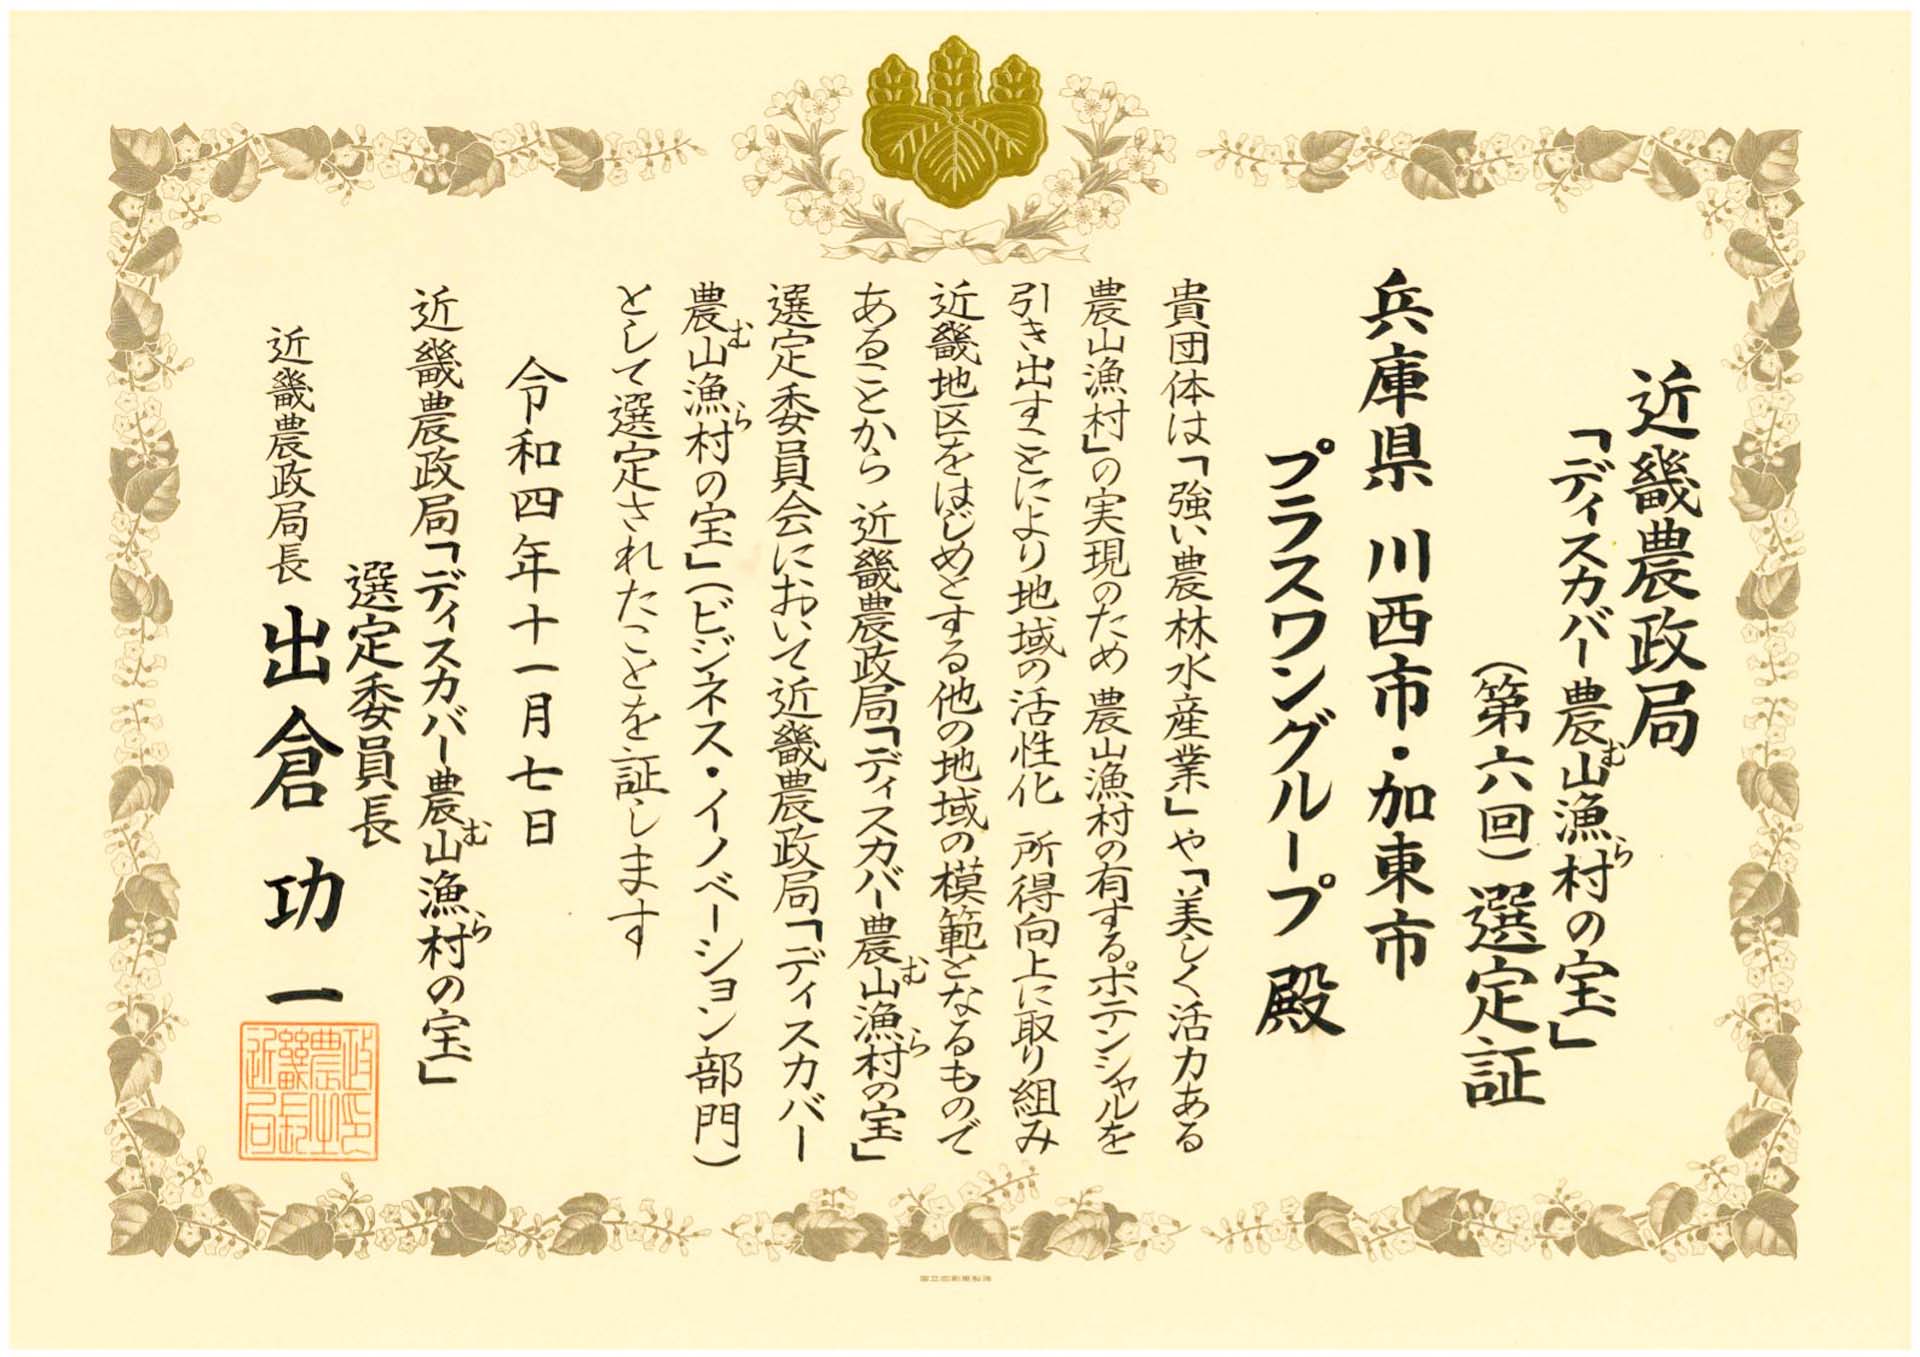 近畿農政局
「ディスカバー農山漁村の宝」
むら
(第六回)選定証
兵庫県 川西市・加東市
プラスワングループ 殿
貴団体は「強い農林水産業」や「美しく活力ある
農山漁村」の実現のため 農山漁村の有するポテンシャルを
引き出すことにより地域の活性化 所得向上に取り組み
近畿地区をはじめとする他の地域の模範となるもので
あることから 近畿農政局「ディスカバー農山漁村の宝」
むら
選定委員会において近畿農政局「ディスカバー
農山漁村の宝」(ビジネス・イノベーション部門)
むら
として選定されたことを証します
令和四年十一月七日
近畿農政局「ディスカバー農山漁村の宝」
むら
選定委員長
近畿農政局長 出倉功一
国立印刷局製造